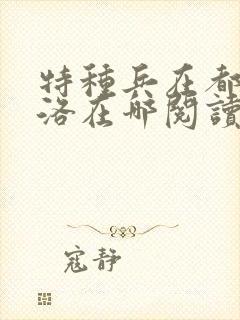 特種兵在都
洛在哪閱讀
寇靜